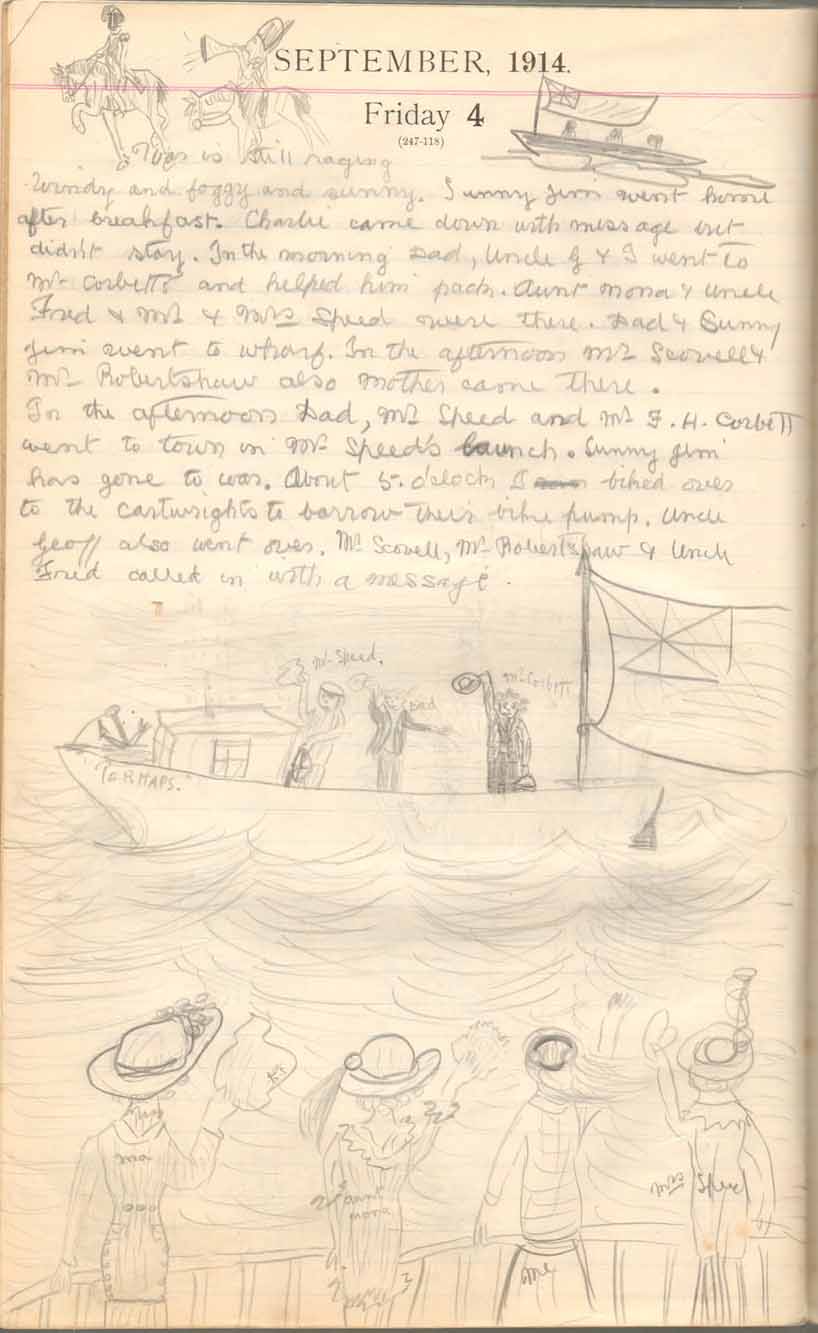 SEPTEMBER, 1914.
Friday 4
(247-118)
War is still raging
Windy and foggy and sunny. Sunny Jim went home
after breakfast. Charlie came down with message but
didn't stay. In the morning Dad, Uncle G & I went to
Mr Corbetts and helped him pack. Aunt Mona & Uncle
Fred & Mr & Mrs Speed were there. Dad & Sunny
Jim went to wharf. In the afternoon Mr Scovell &
Mr Robertshaw also Mother came there.
In the afternoon Dad, Mr Speed and Mr F. H. Corbett
went to town in Mr Speed's launch. Sunny Jim
has gone to war. About 5 o'clock I biked over
to the Cartwrights to borrow their bike pump. Uncle
Geoff also went over. Mr Scovell, Mr Robertshaw & Uncle
Fred called in with a message.
Mr Speed.
Dad
Mr Corbett
"PERHAPS."
ma
aunt
mona
me
Mrs Speed